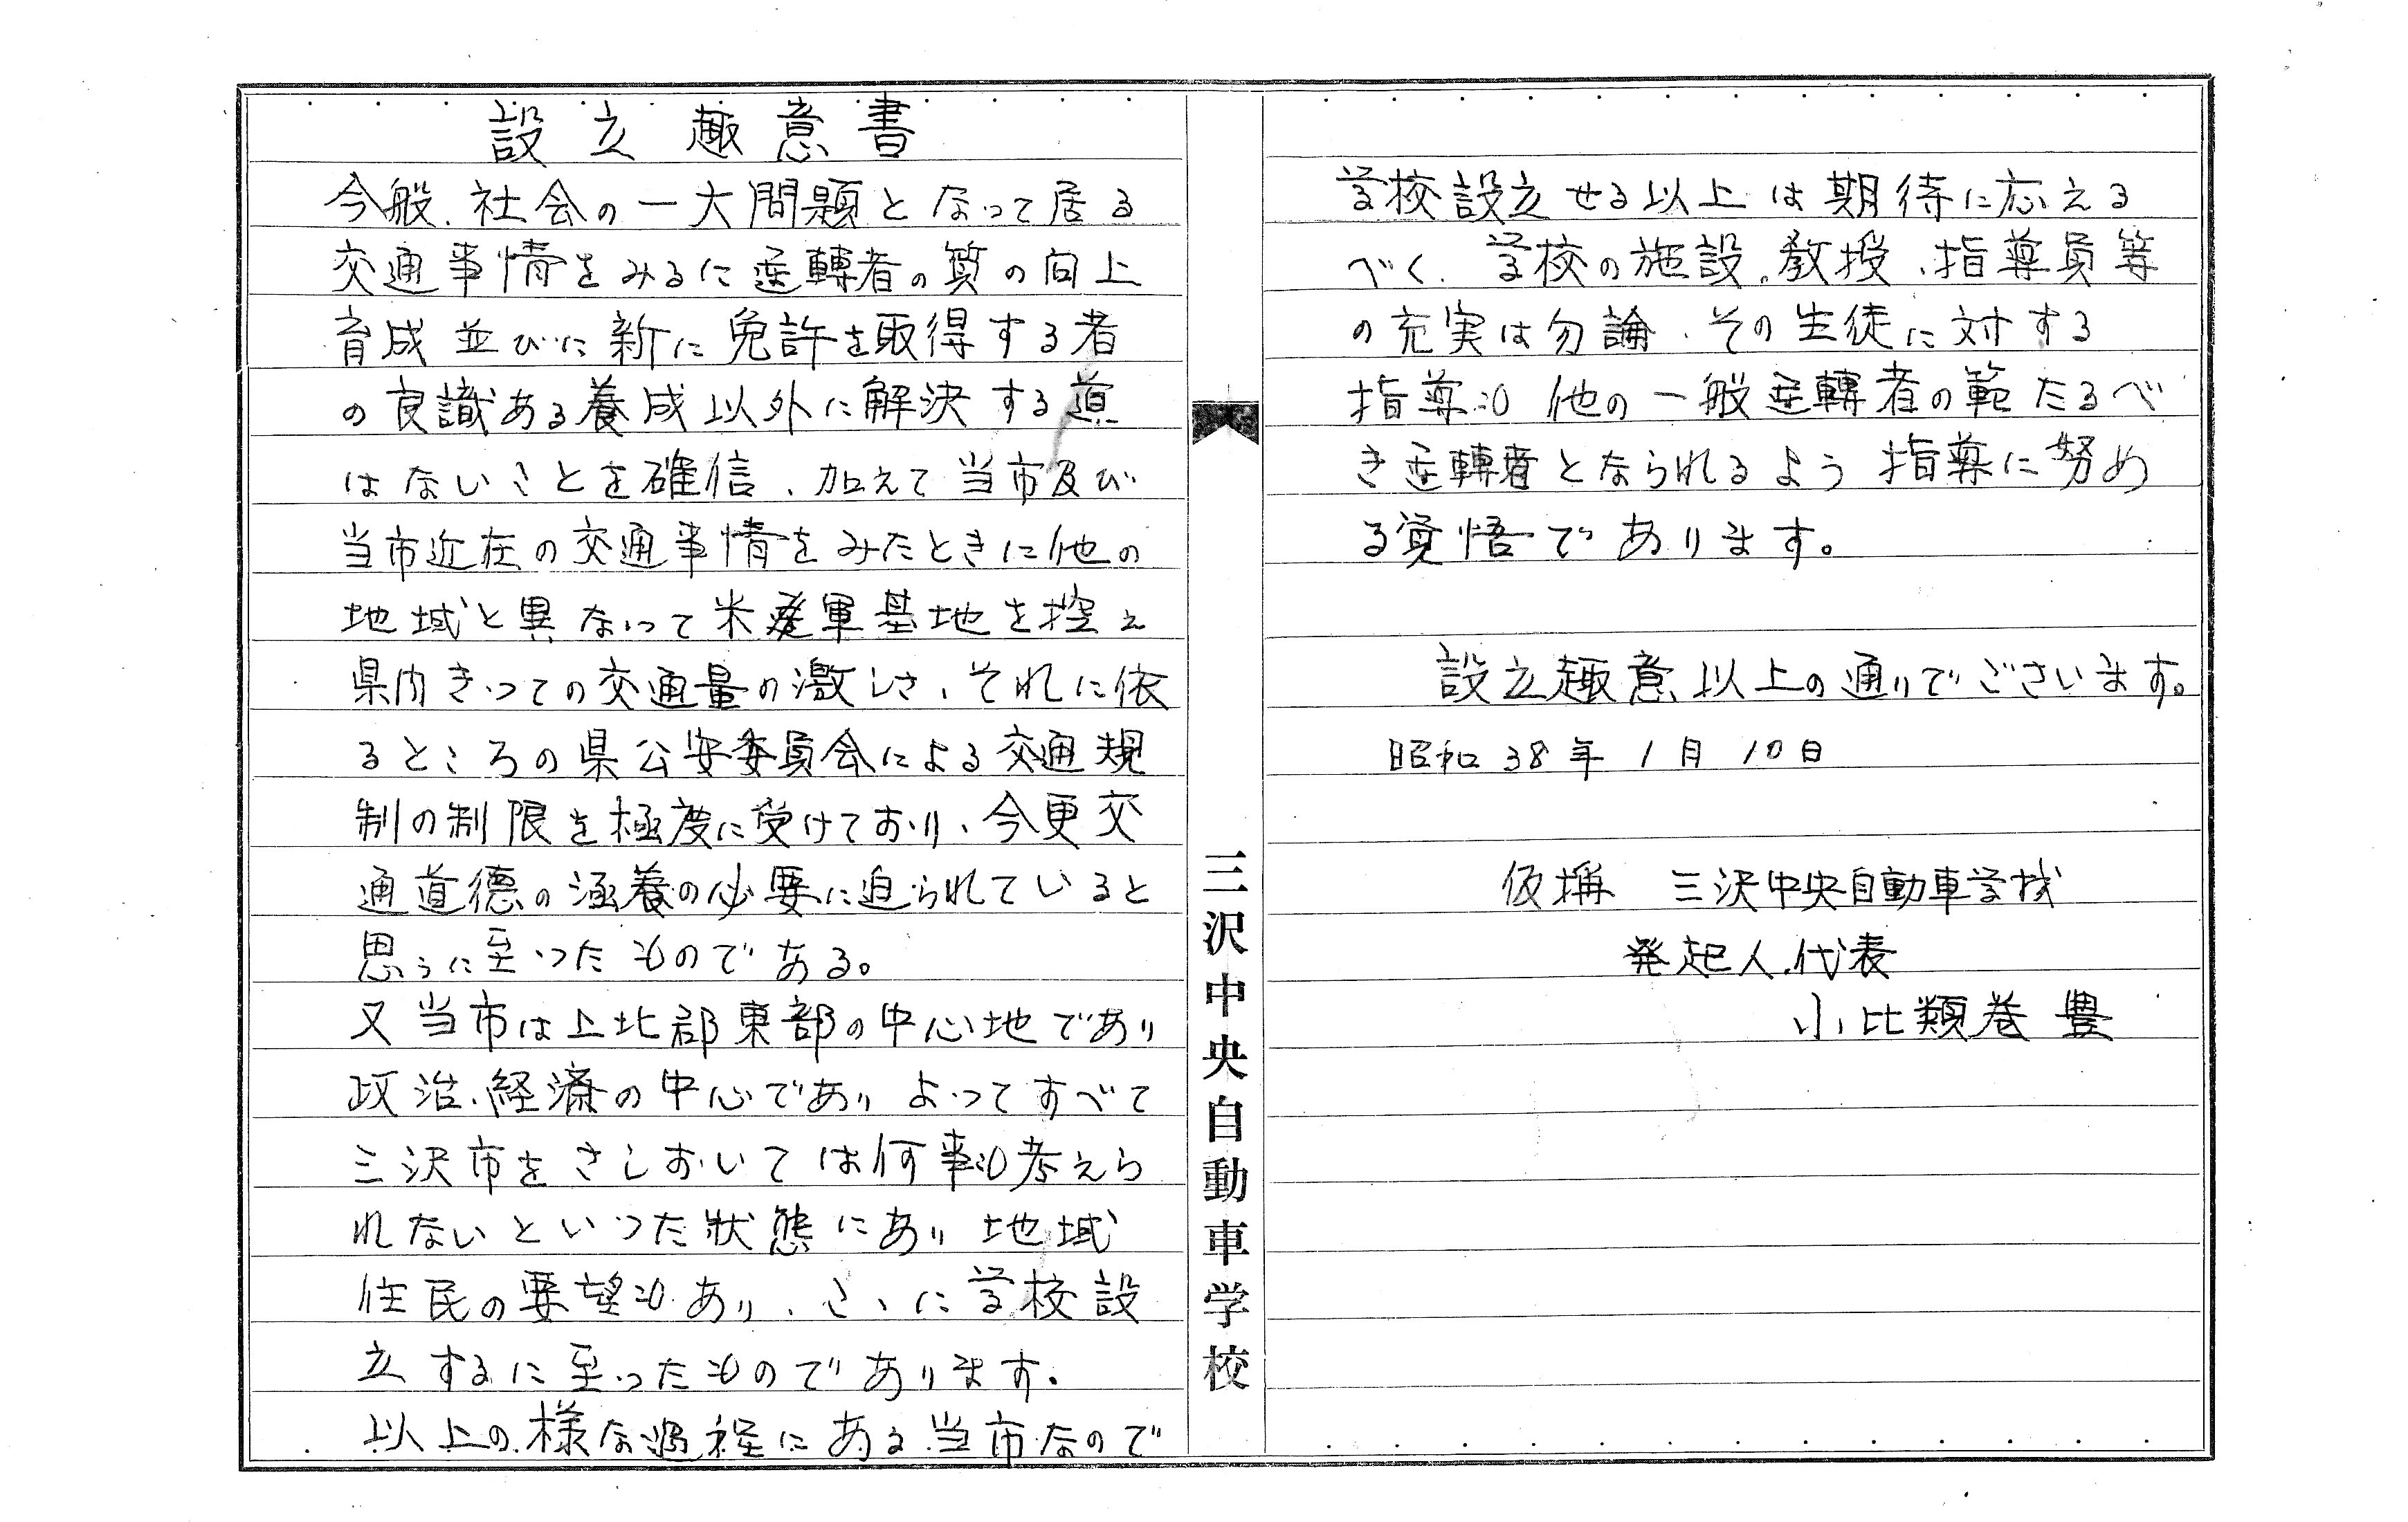 設立趣意書
今般、社会の一大問題となって居る
交通事情をみるに運轉者の質の向上
育成並びに新に免許を取得する者
の良識ある養成以外に解決する道
はないことを確信、加えて当市及び
当市近在の交通事情をみたときに他の
地域と異なって米空軍基地を控え
県内きっての交通量の激しさ、それに依
るところの県公安委員会による交通規
制の制限を極度に受けており、今更交
通道徳の涵養の必要に迫られていると
思うに至ったものである。
又当市は上北郡東部の中心地であり
政治、経済の中心であり よってすべて
三沢市をさしおいては何事も考えら
れないといった状態にあり 地域
住民の要望もあり、こゝに学校設
立するに至ったものであります。
以上の様な過程にある当市なので
三沢中央自動車学校
学校設立せる以上は期待に応える
べく、学校の施設、教授、指導員等
の充実は勿論、その生徒に対する
指導も他の一般運轉者の範たるべ
き運轉者となられるよう指導に努め
る覚悟であります。
設立趣意以上の通りでございます。
昭和38年1月10日
仮称 三沢中央自動車学校
発起人代表
小比類巻 豊